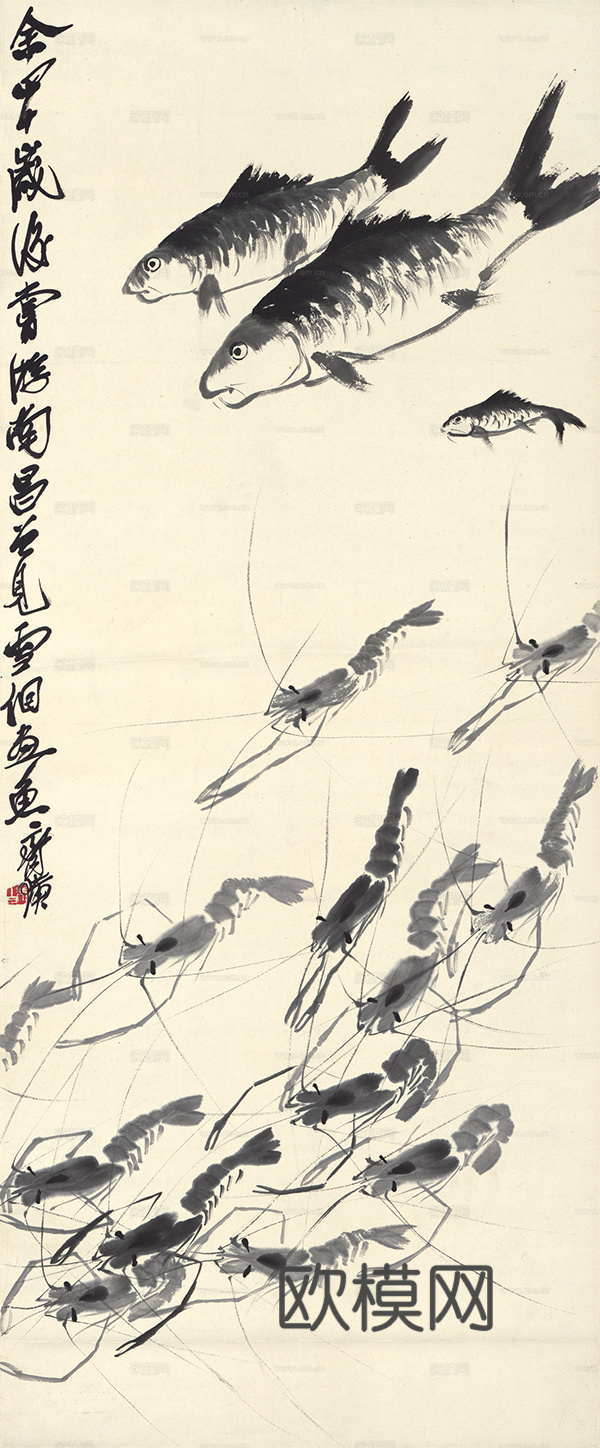 余四十歲後嘗游南昌曾見雪個畫魚齊璜
欧模网